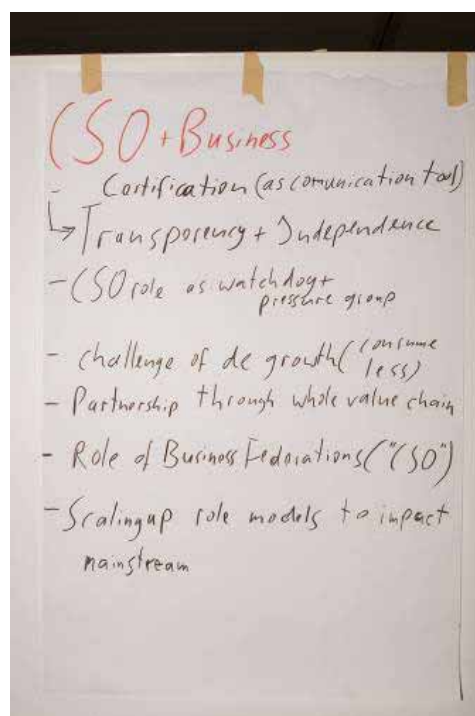 CSO + Business
- Certification (as comunication tool)
↳ Transparency + Independence
- CSO role as watchdog +
pressure group
- challenge of de growth (consume
less)
- Partnership through whole value chain
- Role of Business Federations ("CSO")
- Scaling up role models to impact
mainstream